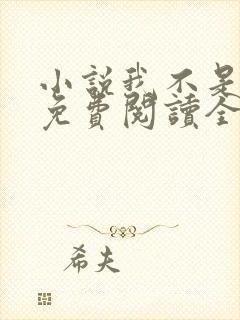 小説我不是
免費閱讀全
希夫